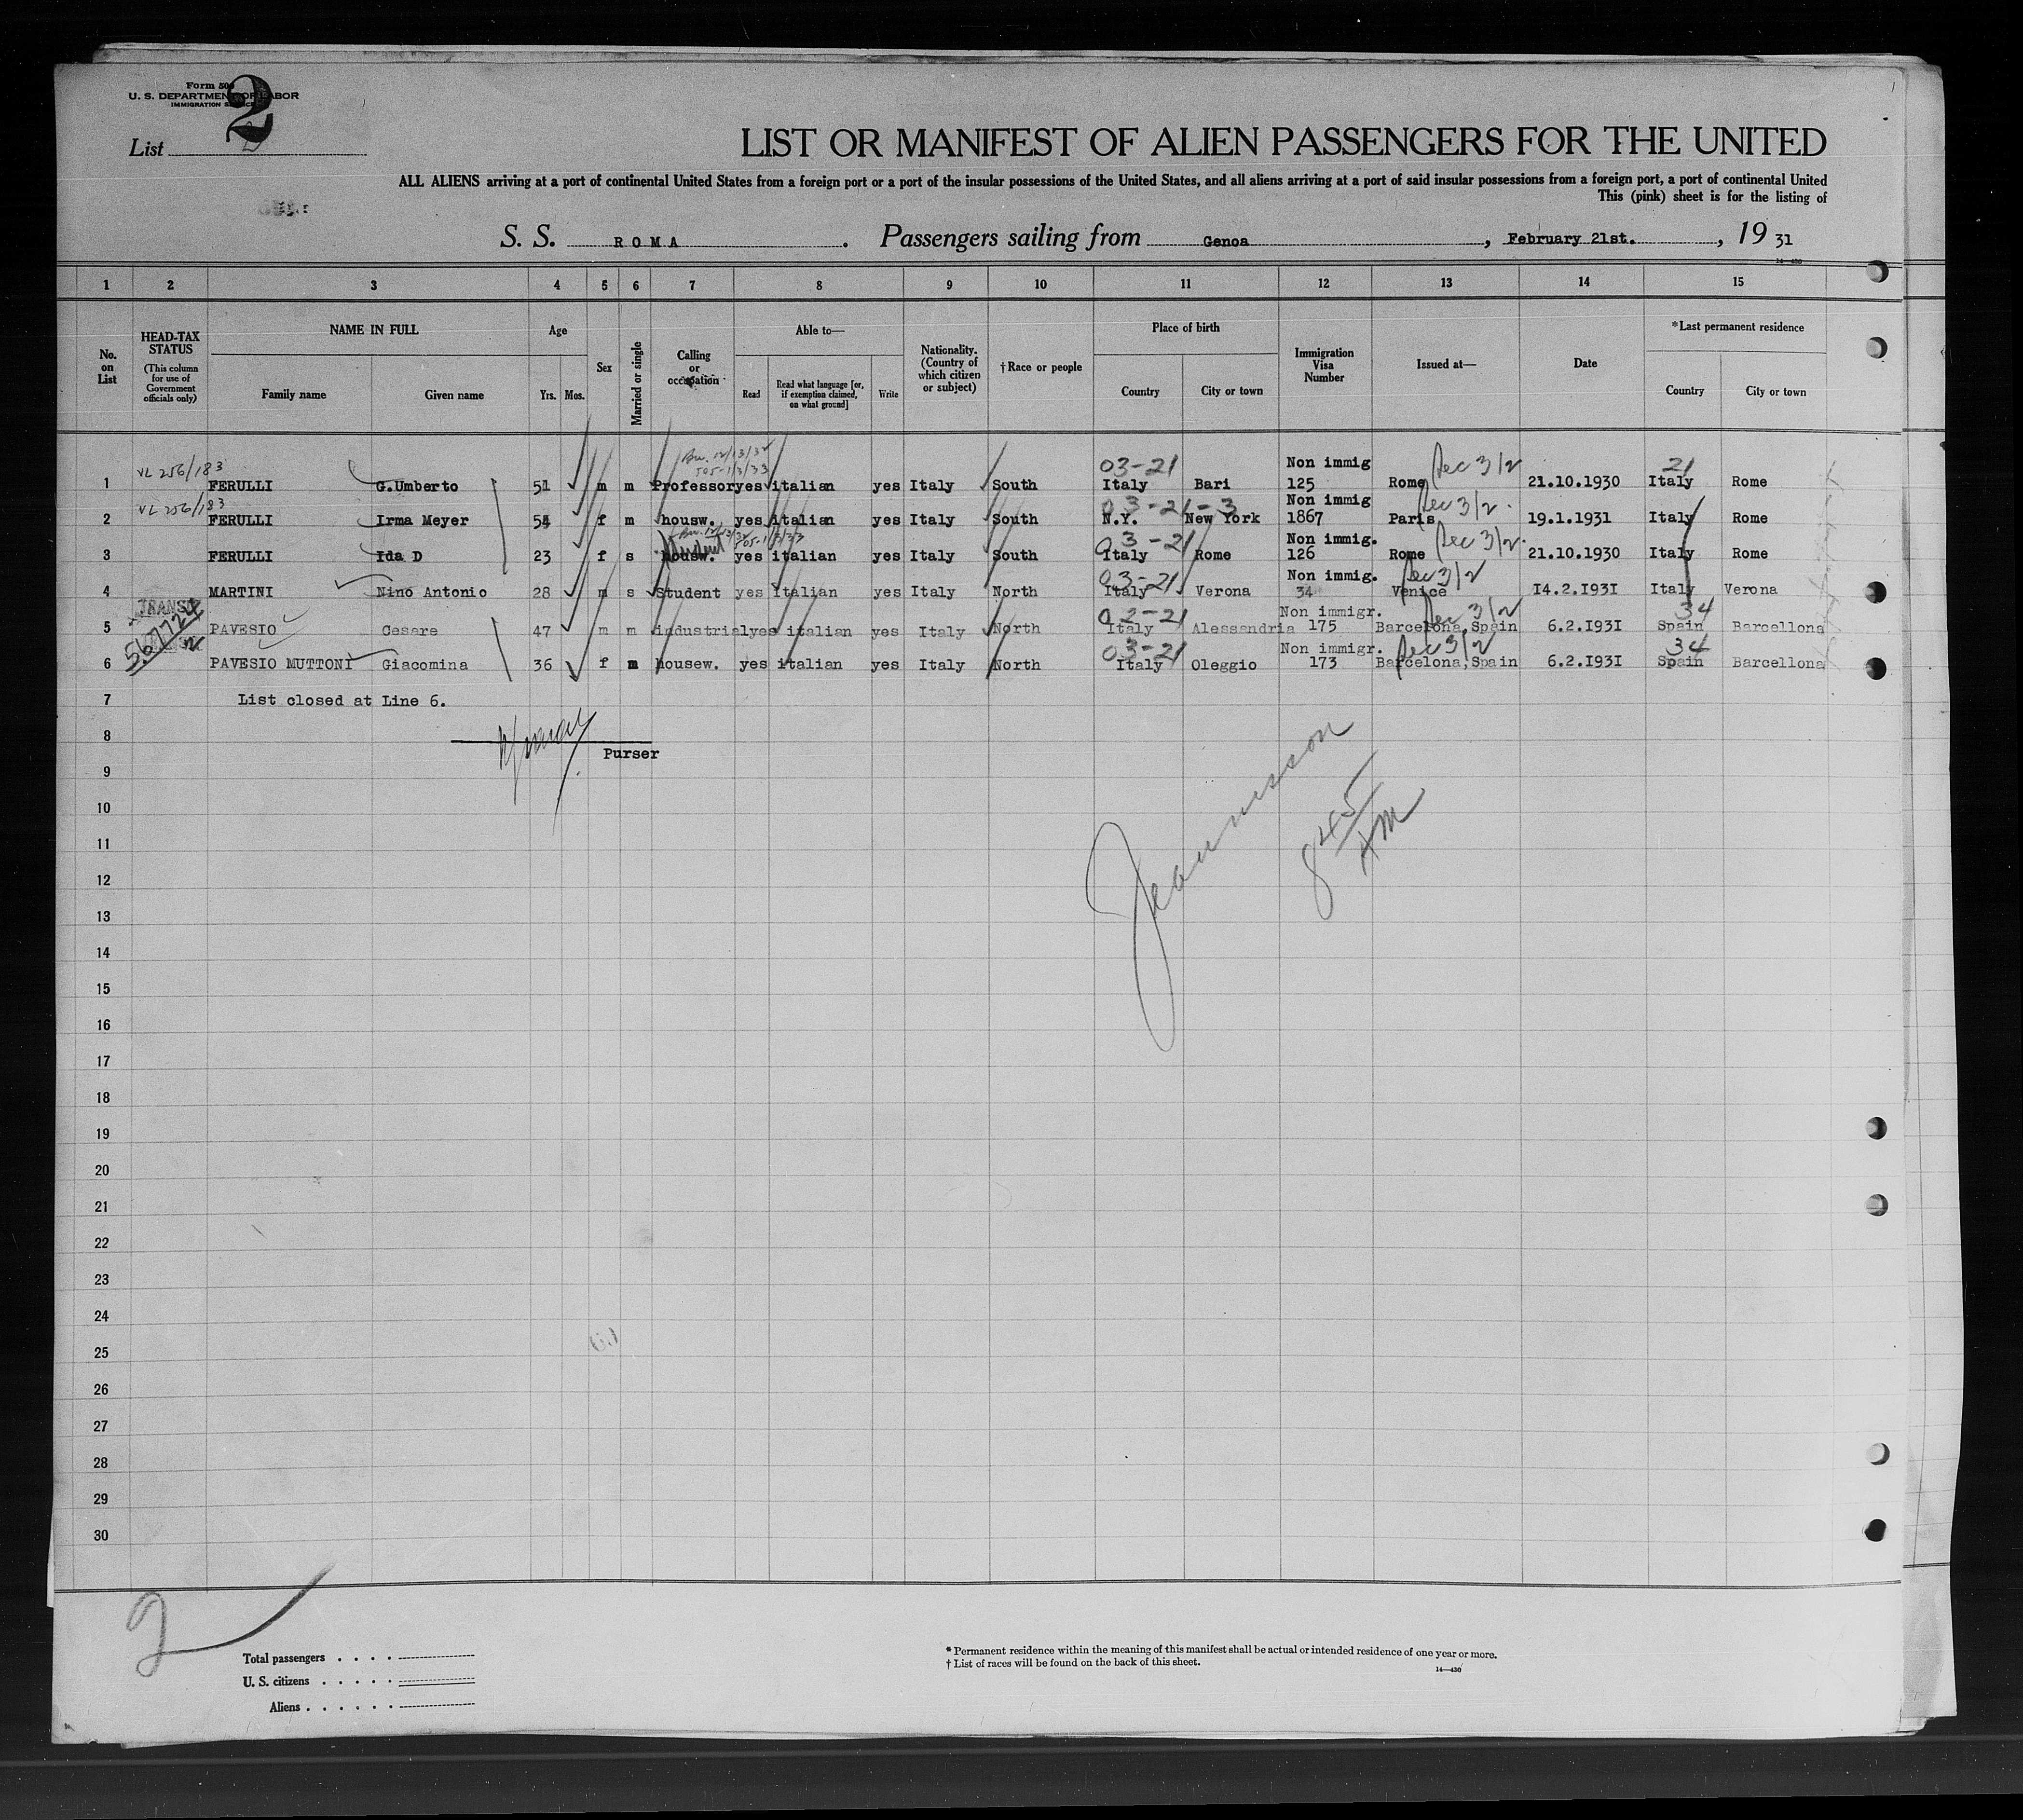 Form 500
U. S. DEPARTMENT OF LABOR
IMMIGRATION SERVICE
2
List
LIST OR MANIFEST OF ALIEN PASSENGERS FOR THE UNITED
ALL ALIENS arriving at a port of continental United States from a foreign port or a port of the insular possessions of the United States, and all aliens arriving at a port of said insular possessions from a foreign port, a port of continental United
This (pink) sheet is for the listing of
S. S. ROMA. Passengers sailing from Genoa, February 21st., 19 31
14-430
1 2 3 4 5 6 7 8 9 10 11 12 13 14 15
No. on List
HEAD-TAX STATUS (This column for use of Government officials only)
NAME IN FULL
Family name Given name
Age
Yrs. Mos.
Sex
Married or single
Calling or occupation
Able to—
Read Read what language [or, if exemption claimed, on what ground] Write
Nationality. (Country of which citizen or subject)
†Race or people
Place of birth
Country City or town
Immigration Visa Number
Issued at—
Date
*Last permanent residence
Country City or town
VL 256/183 505-1/3/33 03-21 Non immig Sec 3/2 21
1 FERULLI G.Umberto 51 m m Professor yes italian yes Italy South Italy Bari 125 Rome 21.10.1930 Italy Rome
VL 256/183 03-21-3 Non immig Sec 3/2
2 FERULLI Irma Meyer 54 f m housw. yes italian yes Italy South N.Y. New York 1867 Paris 19.1.1931 Italy Rome
Student 505-1/3/33 03-21 Non immig. Sec 3/2
3 FERULLI Ida D 23 f s housw. yes italian yes Italy South Italy Rome 126 Rome 21.10.1930 Italy Rome
03-21 Non immig. Sec 3/2
4 MARTINI Nino Antonio 28 m s Student yes Italian yes Italy North Italy Verona 34 Venice I4.2.I93I Italy Verona
03-21 Non immigr. Sec 3/2 34
5 PAVESIO Cesare 47 m m industrial yes italian yes Italy North Italy Alessandria 175 Barcelona, Spain 6.2.I93I Spain Barcellona
03-21 Non immigr. Sec 3/2 34
6 PAVESIO MUTTONI Giacomina 36 f m housew. yes italian yes Italy North Italy Oleggio 173 Barcelona, Spain 6.2.I93I Spain Barcellona
7 List closed at Line 6.
8
Purser
9
10
11
12
13
14
15
16
17
18
19
20
21
22
23
24
25
26
27
28
29
30
8 45 AM
2
Total passengers
U. S. citizens
Aliens
* Permanent residence within the meaning of this manifest shall be actual or intended residence of one year or more.
† List of races will be found on the back of this sheet.
14-430